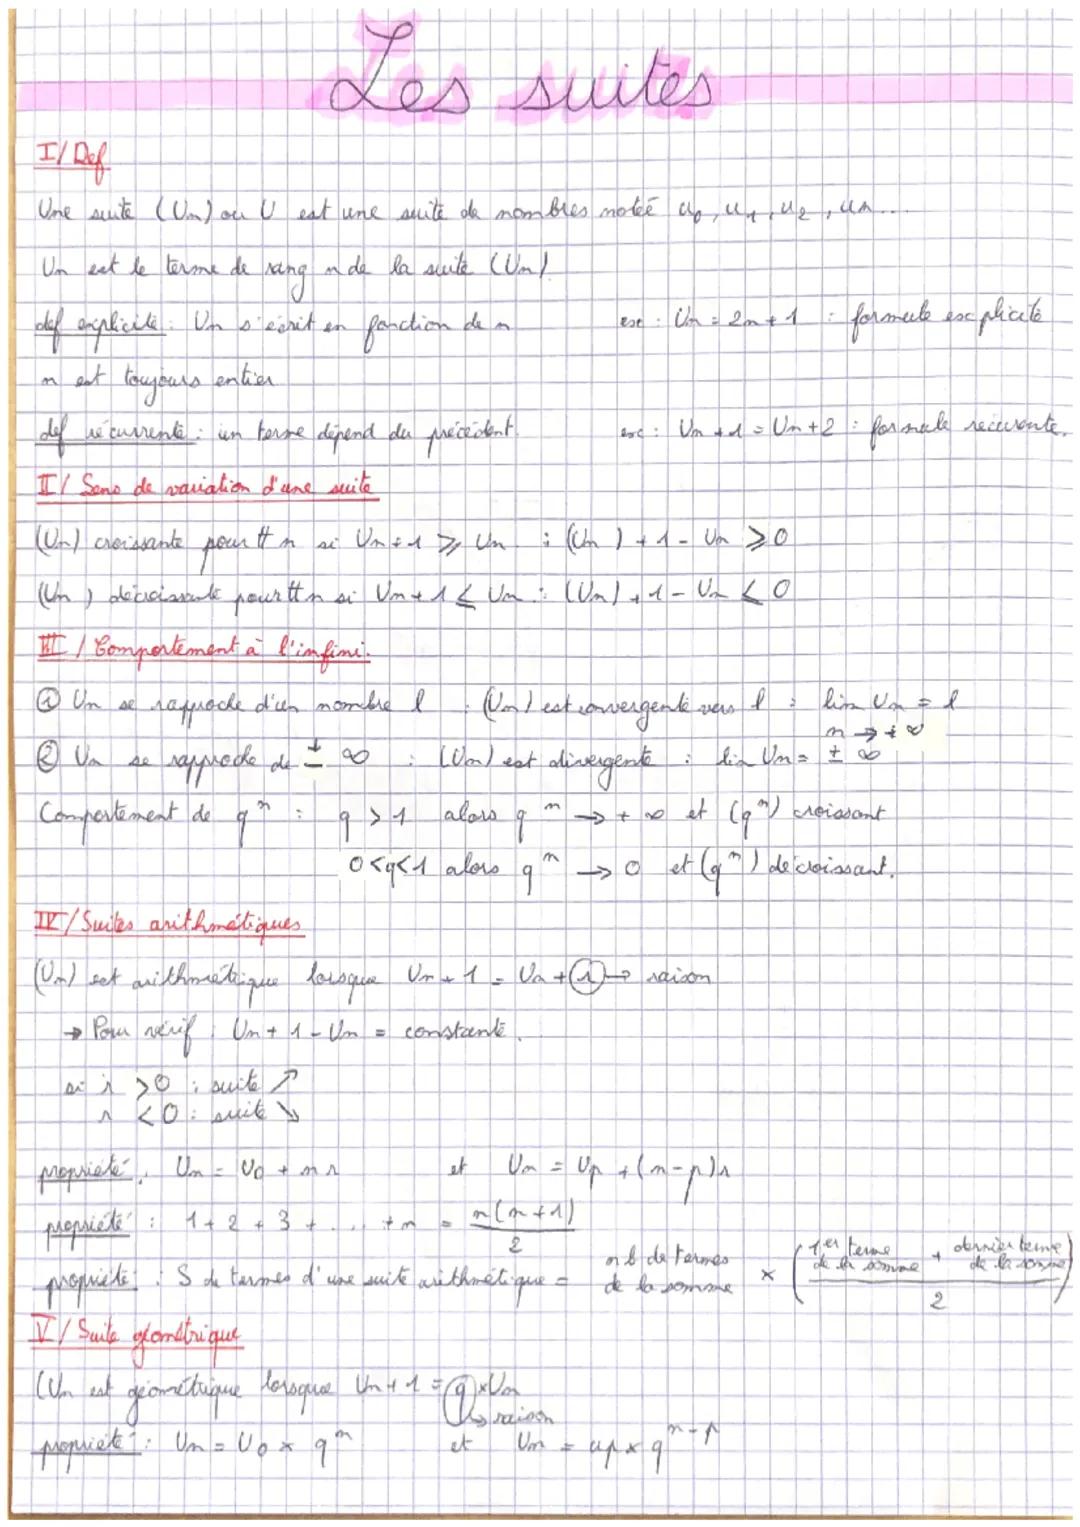 Les suites
I/ Def
Une suite (Un) ou U est une suite de nombres notée u0, u1, u2, un...
Un est le terme de rang n de la suite (Un)
def explicite : Un s'écrit en fonction de n ex : Un = 2n + 1 : formule explicite
n est toujours entier
def récurrente : un terme dépend du précédent. ex : Un+1 = Un+2 : formule récurrente.
II/ Sens de variation d'une suite
(Un) croissante pour tt n si Un+1 ⩾ Un : (Un)+1 - Un ⩾ 0
(Un) décroissante pour tt n si Un+1 ⩽ Un : (Un)+1 - Un ⩽ 0
III/ Comportement à l'infini.
① Un se rapproche d'un nombre l : (Un) est convergente vers l : lim Un = l
n → +∞
② Un se rapproche de ± ∞ : (Un) est divergente : lim Un = ± ∞
Comportement de qⁿ : q > 1 alors qⁿ → +∞ et (qⁿ) croissant
0<q<1 alors qⁿ → 0 et (qⁿ) décroissant.
IV/ Suites arithmétiques
(Un) est arithmétique lorsque Un+1 = Un + r → raison
→ Pour vérif : Un+1 - Un = constante.
si r > 0 : suite ↗
r < 0 : suite ↘
propriété : Un = U0 + nr et Un = Up + (n-p)r
propriété : 1 + 2 + 3 + ... + n = n(n+1)/2
propriété : S de termes d'une suite arithmétique = nb de termes de la somme × (1er terme de la somme + dernier terme de la somme)/2
V/ Suite géométrique
(Un est géométrique lorsque Un+1 = q×Un
↳ raison
propriété : Un = U0 × qⁿ et Un = up × qⁿ⁻ᵖ